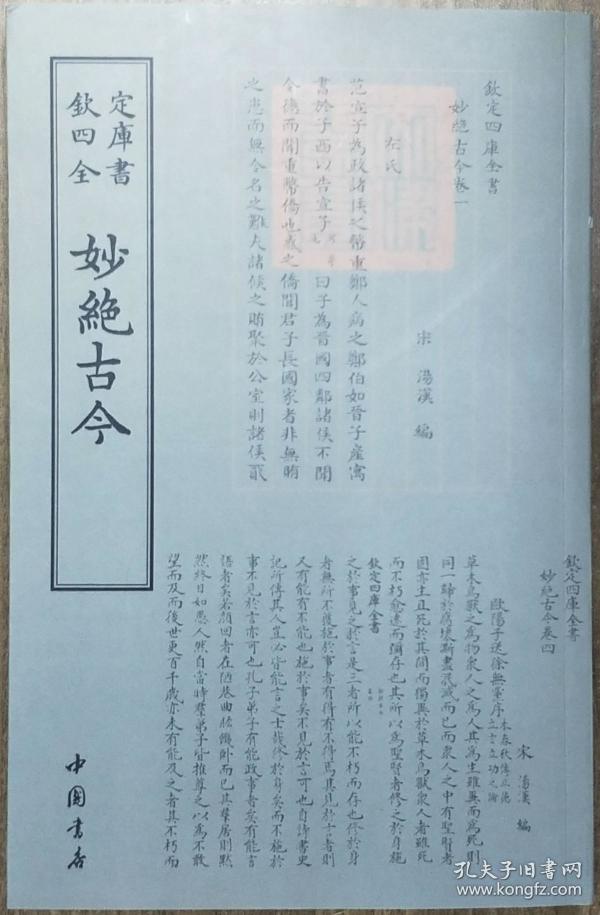 欽定四庫全書
妙絕古今
中國書店
欽定四庫全書
妙絕古今卷一
宋 湯漢 編
左氏
范宣子為政諸侯之幣重鄭人病之鄭伯如晉子產寓
書於子西以告宣子曰子為晉國四鄰諸侯不聞
令德而聞重幣僑也惑之僑聞君子長國家者非無賄
之患而無令名之難夫諸侯之賄聚於公室則諸侯貳
欽定四庫全書
妙絕古今卷四
宋 湯漢 編
歐陽子送徐無黨序本春秋傳立德立言立功之論
草木鳥獸之為物衆人之為人其為生雖異而為死則
同一歸於腐壞澌盡泯滅而已而衆人之中有聖賢者
固亦生且死於其間而獨異於草木鳥獸衆人者雖死
而不朽愈遠而彌存也其所以為聖賢者修之於身施
欽定四庫全書
之於事見之於言是三者所以能不朽而存也修於身
者無所不獲施於事者有得有不得焉其見於言者則
又有能有不能也施於事矣不見於言可也自詩書史
記所傳其人豈必皆能言之士哉修於身矣而不施於
事不見於言亦可也孔子弟子有能政事者矣有能言
語者矣若顏回者在陋巷曲肱饑卧而已其羣居則默
然終日如愚人然自當時羣弟子皆推尊之以為不敢
望而及而後世更百千歲亦未有能及之者其不朽而
孔夫子旧书网
www.kongfz.com